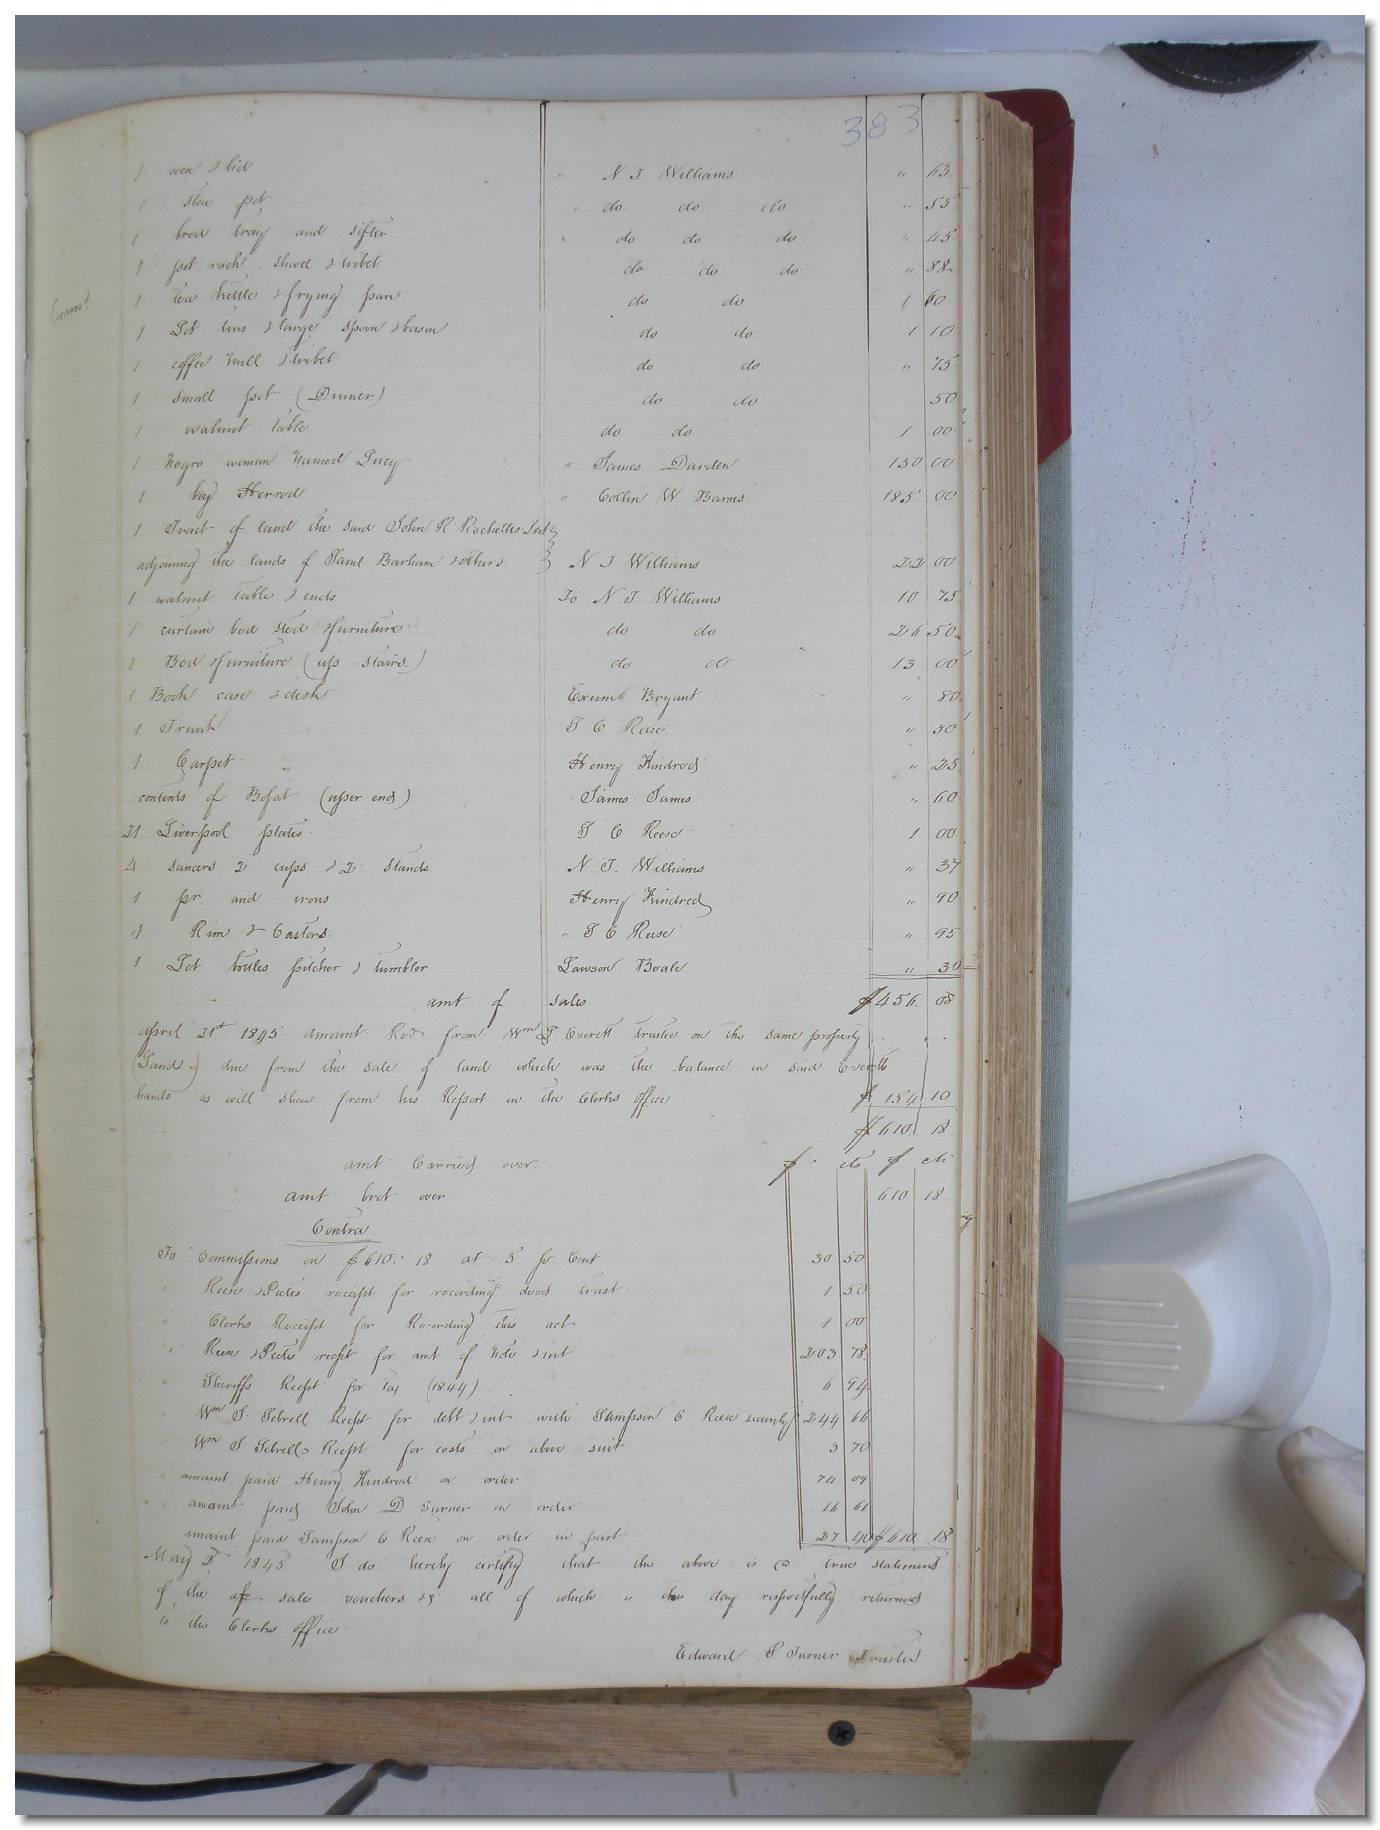 383
1 oven & lid " N T Williams " 63
1 stew pot " do do do " 55
1 bred tray and sifter " do do do " 45
1 pot rack shovel & tribet do do do " 88
1 tea kettle & frying pan do do 1 60
Exam?
1 Lot tins & large spoon & basin do do 1 10
1 coffee mill & tribet do do " 75
1 small pot (Dinner) do do 50
1 walnut table do do 1 00
1 Negro woman Named Lucy " James Darden 150 00
1 boy Herrod " Collin W Barnes 185 00
1 Tract of land the said John R Rochelles Int
adjoining the lands of Saml Barham & others N T Williams 22 00
1 walnut table & ends To N. T. Williams 10 75
1 curtain bed sted & furniture do do 26 50
1 Bed & furniture (up stairs) do do 13 00
1 Book case & desk Exum Bryant " 80
1 Trunk S C Reese " 30
1 Carpet Henry Kindred " 25
contents of Bofat (upper end) James James " 60
21 Liverpool plates S C Reese 1 00
4 saucers 2 cups & 2 stands N. T. Williams " 37
1 pr and irons Henry Kindred " 90
1 Rim & Casters " S C Reese " 95
1 Lot bottles pitcher & tumbler Lawson Beale " 30
amt of sales $456. 08
April 21st 1845 amount Recd from Wm T. Everett trustee on the same property
(Land) due from the sale of land which was the balance in said Everetts
hands as will show from his Report in the Clerks office $ 154 10
$ 610 18
amt Carried over $ cts $ cts
amt brot over 610 18
Contra
To Commissions on $610.18 at 5 pr Cent 30 50
" Reese & Peetes receipt for recording deed trust 1 50
" Clerks Receipt for Recording this act 1 00
" Reese & Peetes recpt for amt of Note & int 203 78
" Sheriffs Recpt for tax (1844) 6 94
" Wm J. Sebrell Recpt for debt & int with Sampson C Reese security 244 66
" Wm J Sebrells Recpt for costs on above suit 3 70
" amount paid Henry Kindred on order 74 09
" amount paid John D Turner on order 16 61
amount paid Sampson C Reese on order in part 27 40 $610 18
May 2d 1845 I do hereby certify that the above is a true statement
of the of sale vouchers &c all of which is this day respectfully returned
to the Clerks office
Edward P Turner Trustee